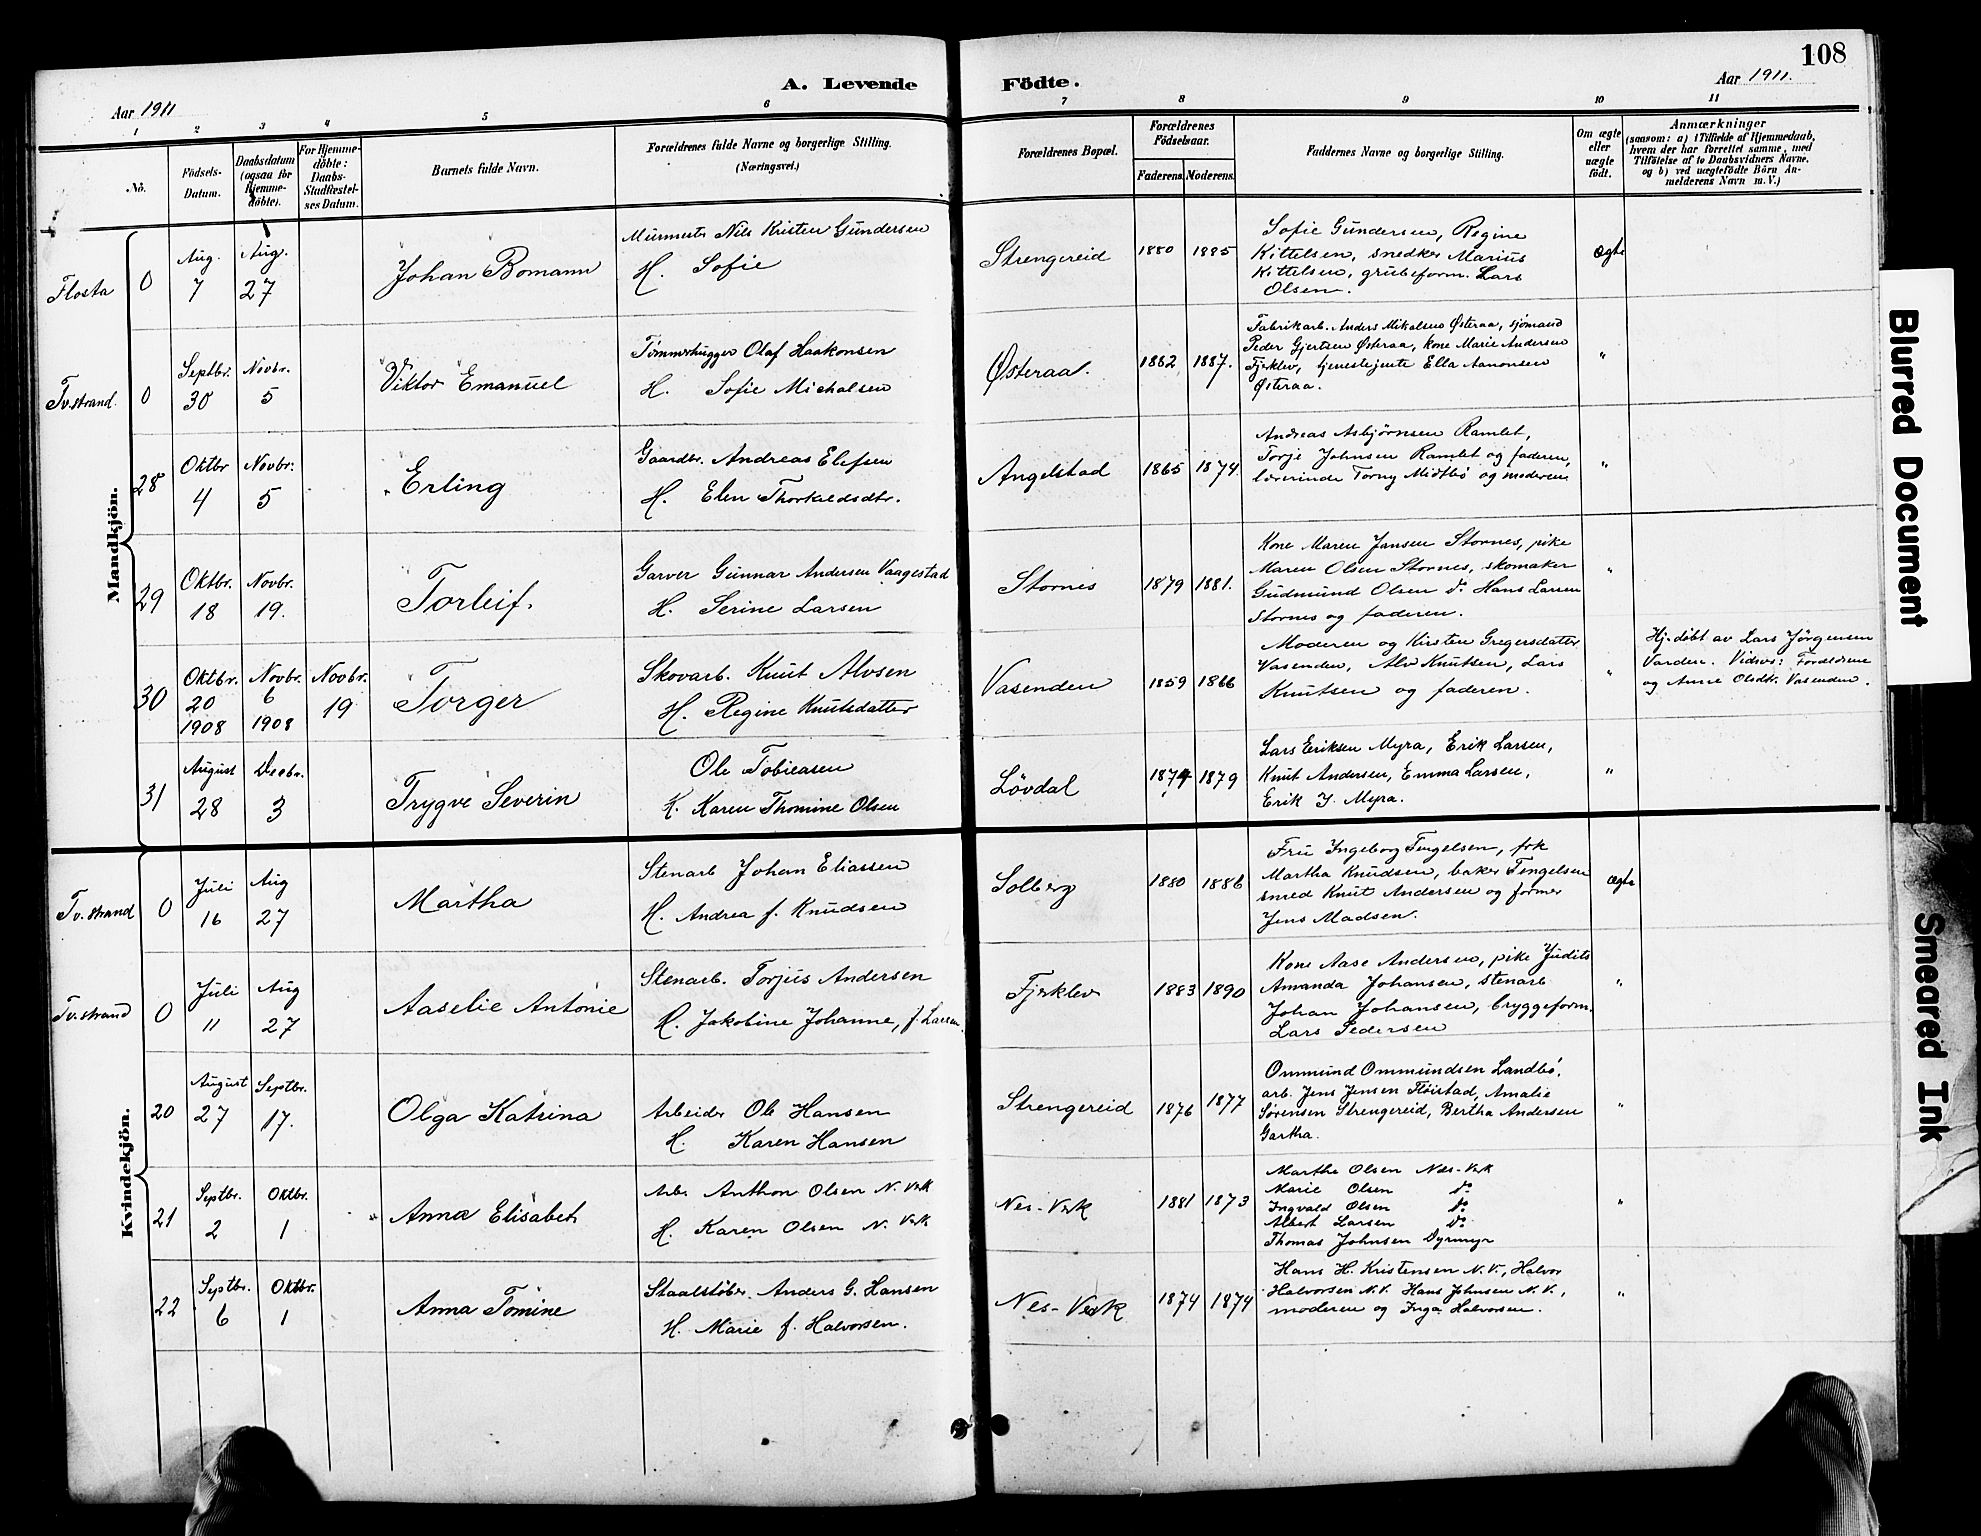 108
A. Levende Födte.
Aar 1911
Aar 1911.
1 2 3 4 5 6 7 8 9 10 11
No.
Födsels-Datum.
Daabsdatum (ogsaa for Hjemme-döbte).
For Hjemme-döbte: Daabs-Stadfæstel-ses Datum.
Barnets fulde Navn.
Forældrenes fulde Navne og borgerlige Stilling.
(Næringsvei.)
Forældrenes Bopæl.
Forældrenes Födselsaar.
Faderens. Moderens.
Faddernes Navne og borgerlige Stilling.
Om ægte eller uægte födt.
Anmærkninger
(saasom: a) i Tilfælde af Hjemmedaab,
hvem der har forrettet samme, med
Tilföielse af to Daabsvidners Navne.
og b) ved uægtefödte Börn An-
melderens Navn m.V.)
Mandkjön.
Flosta 0 Aug. 7 Aug. 27 Johan Bomann
Murmestr Nils Kristen Gundersen
H. Sofie
Strengereid 1880 1885
Sofie Gundersen, Regine
Kittelsen, snedker Marius
Kittelsen, grubeform. Lars
Olsen.
Ægte
Tv.strand. 0 Septbr. 30 Novbr. 5 Viktor Emanuel
Tømmerhugger Olaf Haakonsen
H. Sofie Michalsen
Østeraa. 1882 1887.
Fabrikarb. Anders Mikalsens Østeraa, sjømand
Peder Gjertsen Østeraa, kone Marie Andersen
Fjæklev, tjenestejente Ella Aanonsen
Østeraa.
"
28 Oktbr 4 Novbr. 5 Erling
Gaardbr. Andreas Elefsen
H. Elen Thorkildsdtr.
Angelstad 1865 1874.
Andreas Asbjørnsen Ramlet,
Torje Johnsen Ramlet og faderen,
lærerinde Torny Midtbø og moderen
"
29 Oktbr. 18 Novbr. 19. Torleif.
Garver Gunnar Andersen Vaagestad
H. Serine Larsen
Stornes 1879 1881.
Kone Maren Jansen Stornes, pike
Maren Olsen Stornes, skomaker
Gudmund Olsen do Hans Larsen
Stornes og faderen.
"
30 Oktbr. 20 Novbr. 6 Novbr. 19 Torger
Skovarb. Knut Alvsen
H. Regine Knutsdatter
Vasenden 1859 1866
Moderen og Kirsten Gregersdatter
Vasenden, Alv Knutsen, Lars
Knutsen og faderen.
"
Hj.døbt av Lars Jørgensen
Varden. Vidner: Forældrene
og Anne Olsdtr. Vasenden.
31 1908 August 28 1908 Decbr. 3 Trygve Severin
Ole Tobiasen
K. Karen Thomine Olsen
Løvdal 1874 1879
Lars Eriksen Myra, Erik Larsen,
Knut Andersen, Emma Larsen,
Erik J. Myra.
"
Kvindekjön.
Tv.strand 0 Juli 16 Aug 27 Martha
Stenarb Johan Eliassen
H. Andrea f. Knudsen
Solberg 1880 1886
Fru Ingeborg Tengelsen, frk
Martha Knudsen, baker Tengelsen
smed Knut Andersen og former
Jens Madsen.
Ægte
Tv.strand 0 Juli 11 Aug 27 Aaselie Antonie
Stenarb. Torjus Andersen
K. Jakobine Johanne, f. Larsen.
Fjæklev 1883 1890
Kone Aase Andersen, pike Judits
Amanda Johansen, stenarb
Johan Johansen, bryggeform.
Lars Pedersen
"
20 August 27 Septbr. 17. Olga Katrina
Arbeider Ole Hansen
H. Karen Hansen
Strengereid 1876 1877
Ommund Ommundsen Landbø,
arb. Jens Jensen Fløistad, Amalie
Sørensen Strengereid, Bertha Andersen
Gartha.
"
21 Septbr. 2 Oktbr. 1 Anna Elisabet
Arbr Anthon Olsen N. Verk
H. Karen Olsen N. Verk
Nes-Verk 1881 1873
Marthe Olsen Nes-Verk
Marie Olsen do
Ingvald Olsen do
Albert Larsen do
Thomas Johnsen Dyrmyr
"
22 Septbr. 6 Oktbr. 1 Anna Tomine
Staalstøber Anders G. Hansen
H. Marie f. Halvorsen.
Nes-Verk 1874 1874
Hans H. Kristensen N.V., Halvor
Halvorsen N.V. Hans Johnsen N.V.,
moderen og Inga Halvorsen.
"
Blurred Document
Smeared Ink